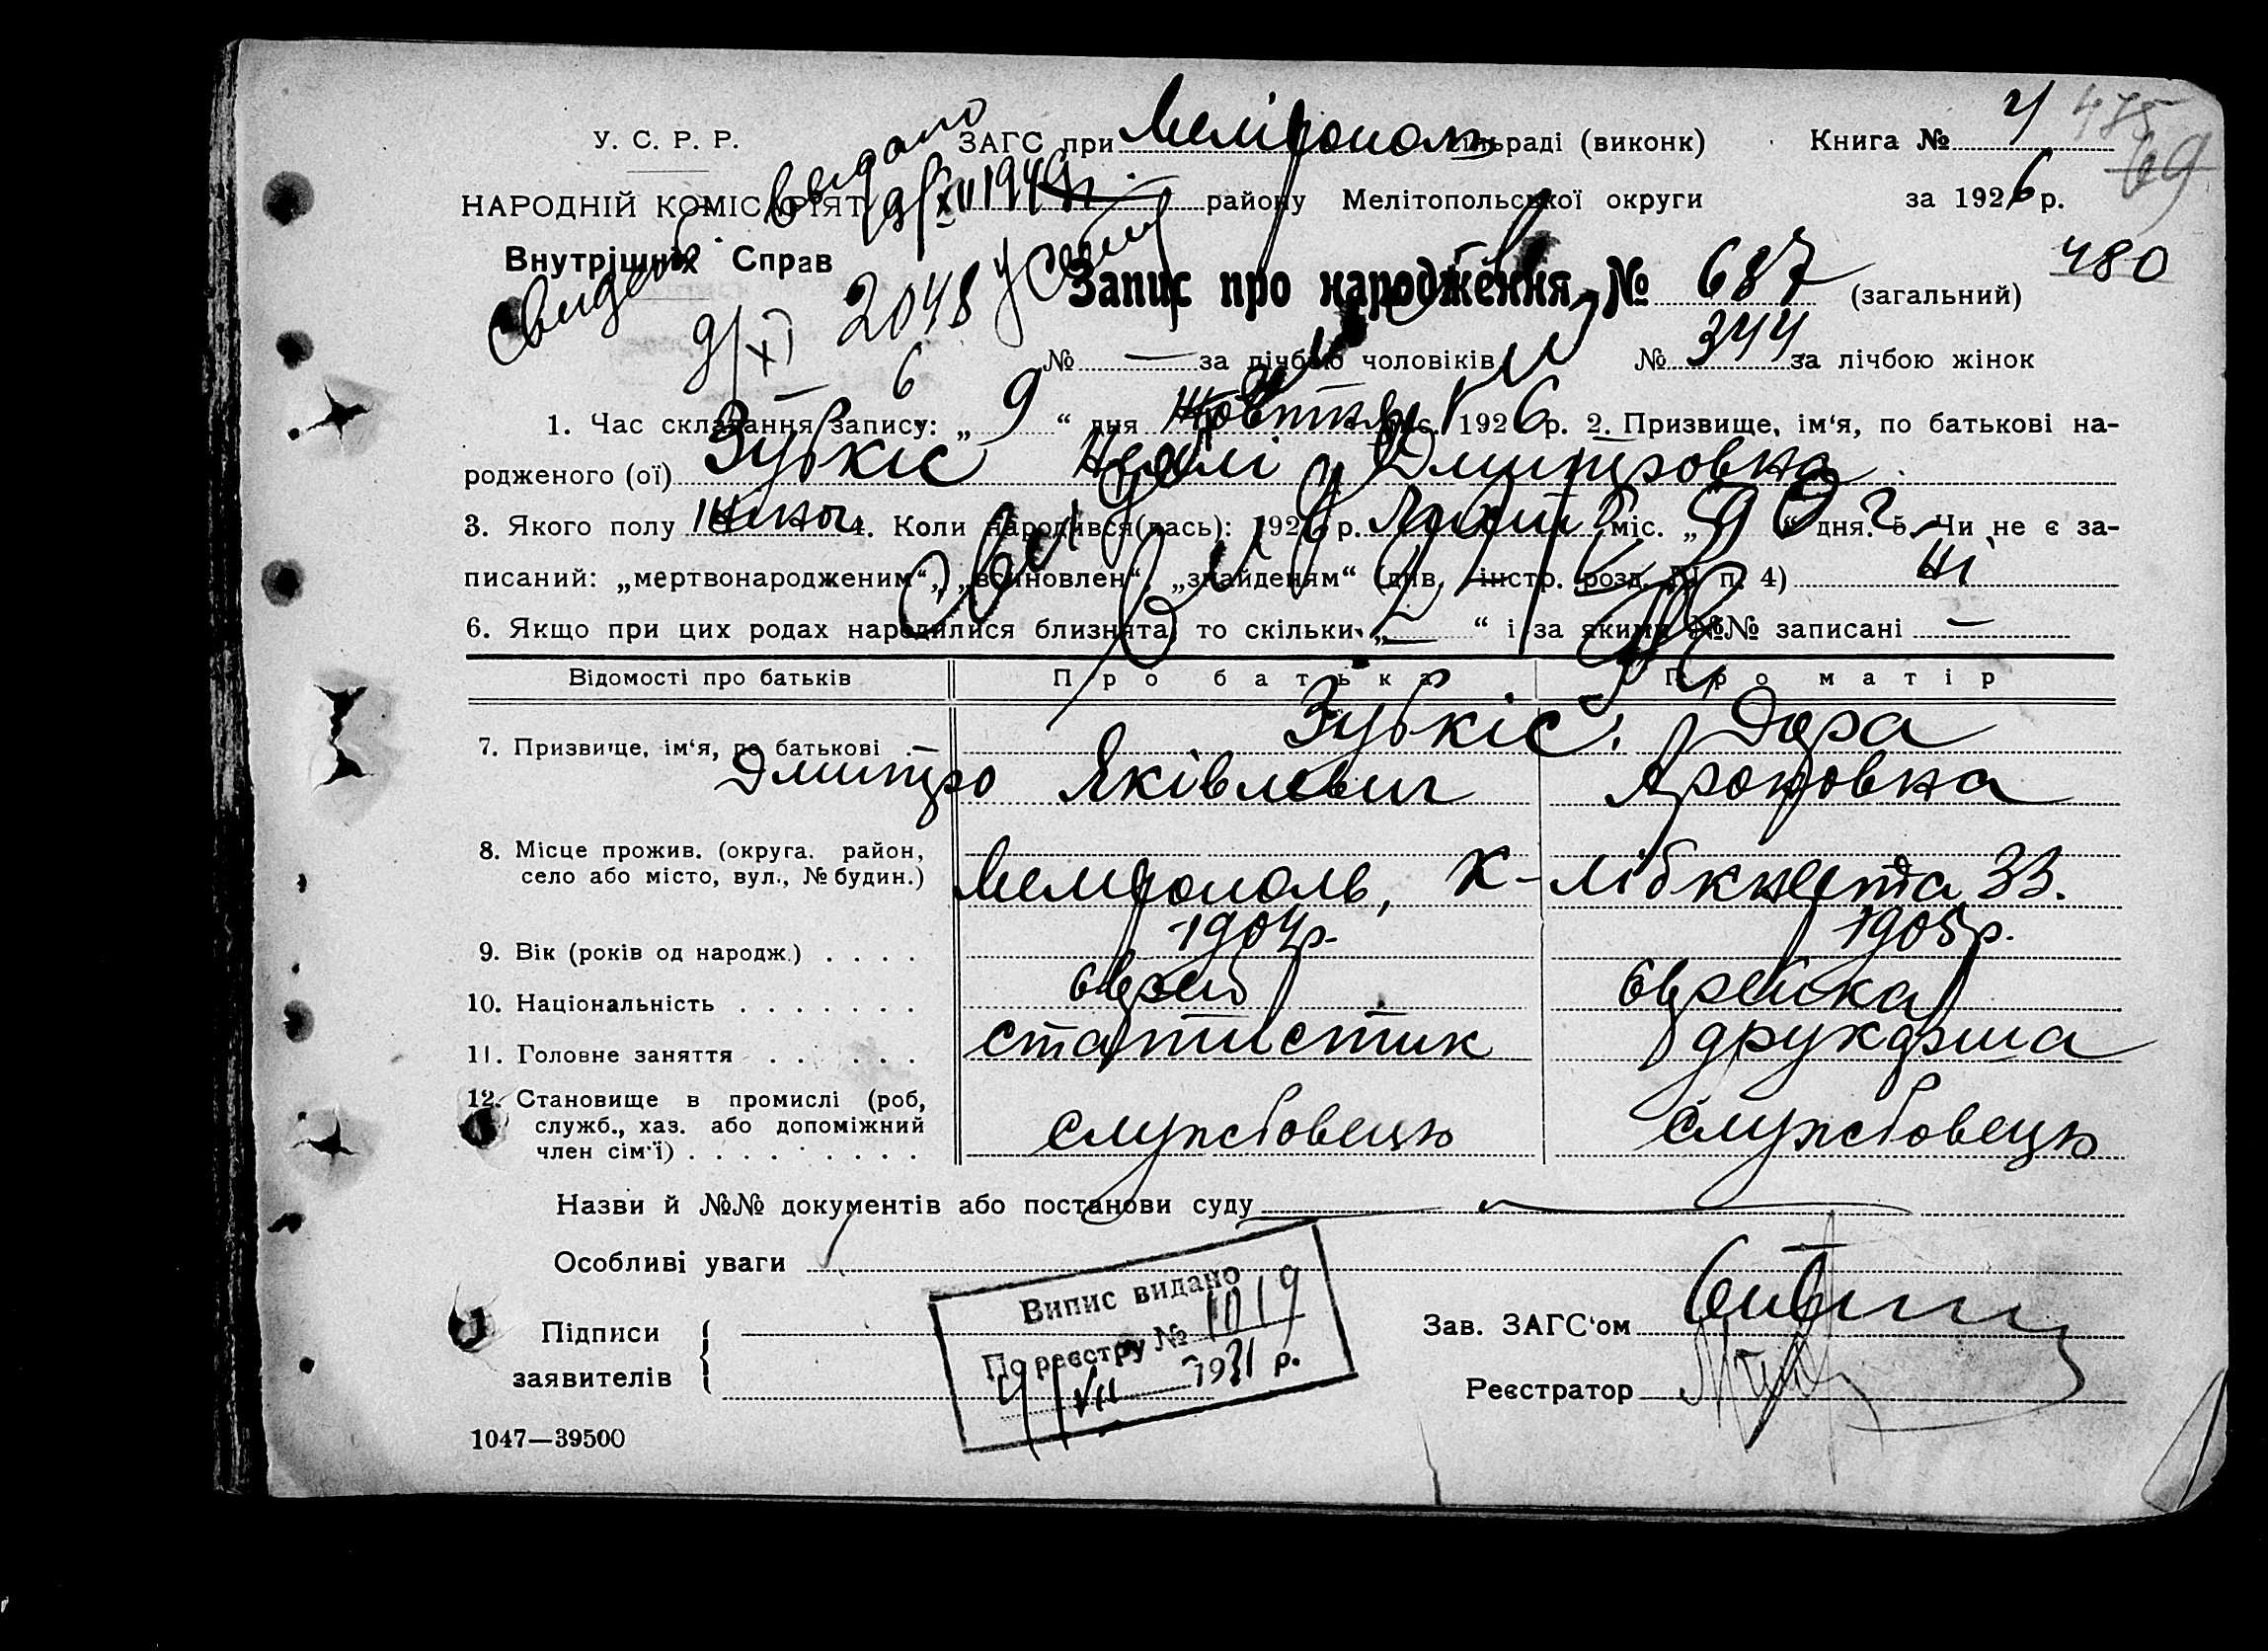 У. С. Р. Р.
НАРОДНІЙ КОМІСАРІЯТ
Внутрішніх Справ
ЗАГС при Мелітополь сільраді (виконк)
району Мелітопольської округи
Книга № 4
475
69
за 1926 р.
480
видано
9/XII 1949 г.
9/XI 2048
6
Запис про народження № 687 (загальний)
№ — за лічбою чоловіків № 344 за лічбою жінок
1. Час складання запису: „9“ дня Жовтня міс. 1926 р. 2. Призвище, ім‘я, по батькові на-
родженого (ої) Зубкіс Нелі Дмитровна
3. Якого полу жіноч. 4. Коли народився(лась): 1926 р. міс. „ “ дня. 5. Чи не є за-
писаний: „мертвонародженим“, „всиновлен“, „знайденям“ (див. інстр. розд. IV п. 4) Ні
6. Якщо при цих родах народилися близнята, то скільки „—“ і за якими №№ записані —
Відомості про батьків Про батька Про матір
7. Призвище, ім‘я, по батькові Зубкіс Дора
Дмитро Яківлевич Ароновна
8. Місце прожив. (округа, район,
село або місто, вул., № будин.) Мелітополь, К-Лібкнехта 33.
9. Вік (років од народж.) 1904 р. 1905 р.
10. Національність еврей еврейка
11. Головне заняття статистик друкарша
12. Становище в промислі (роб,
служб., хаз. або допоміжний
член сім‘ї) службовець службовець
Назви й №№ документів або постанови суду —
Особливі уваги
Випис видано
По реєстру № 1019
4/VII 1931 р.
Підписи
заявителів
Зав. ЗАГС‘ом
Реєстратор
1047—39500